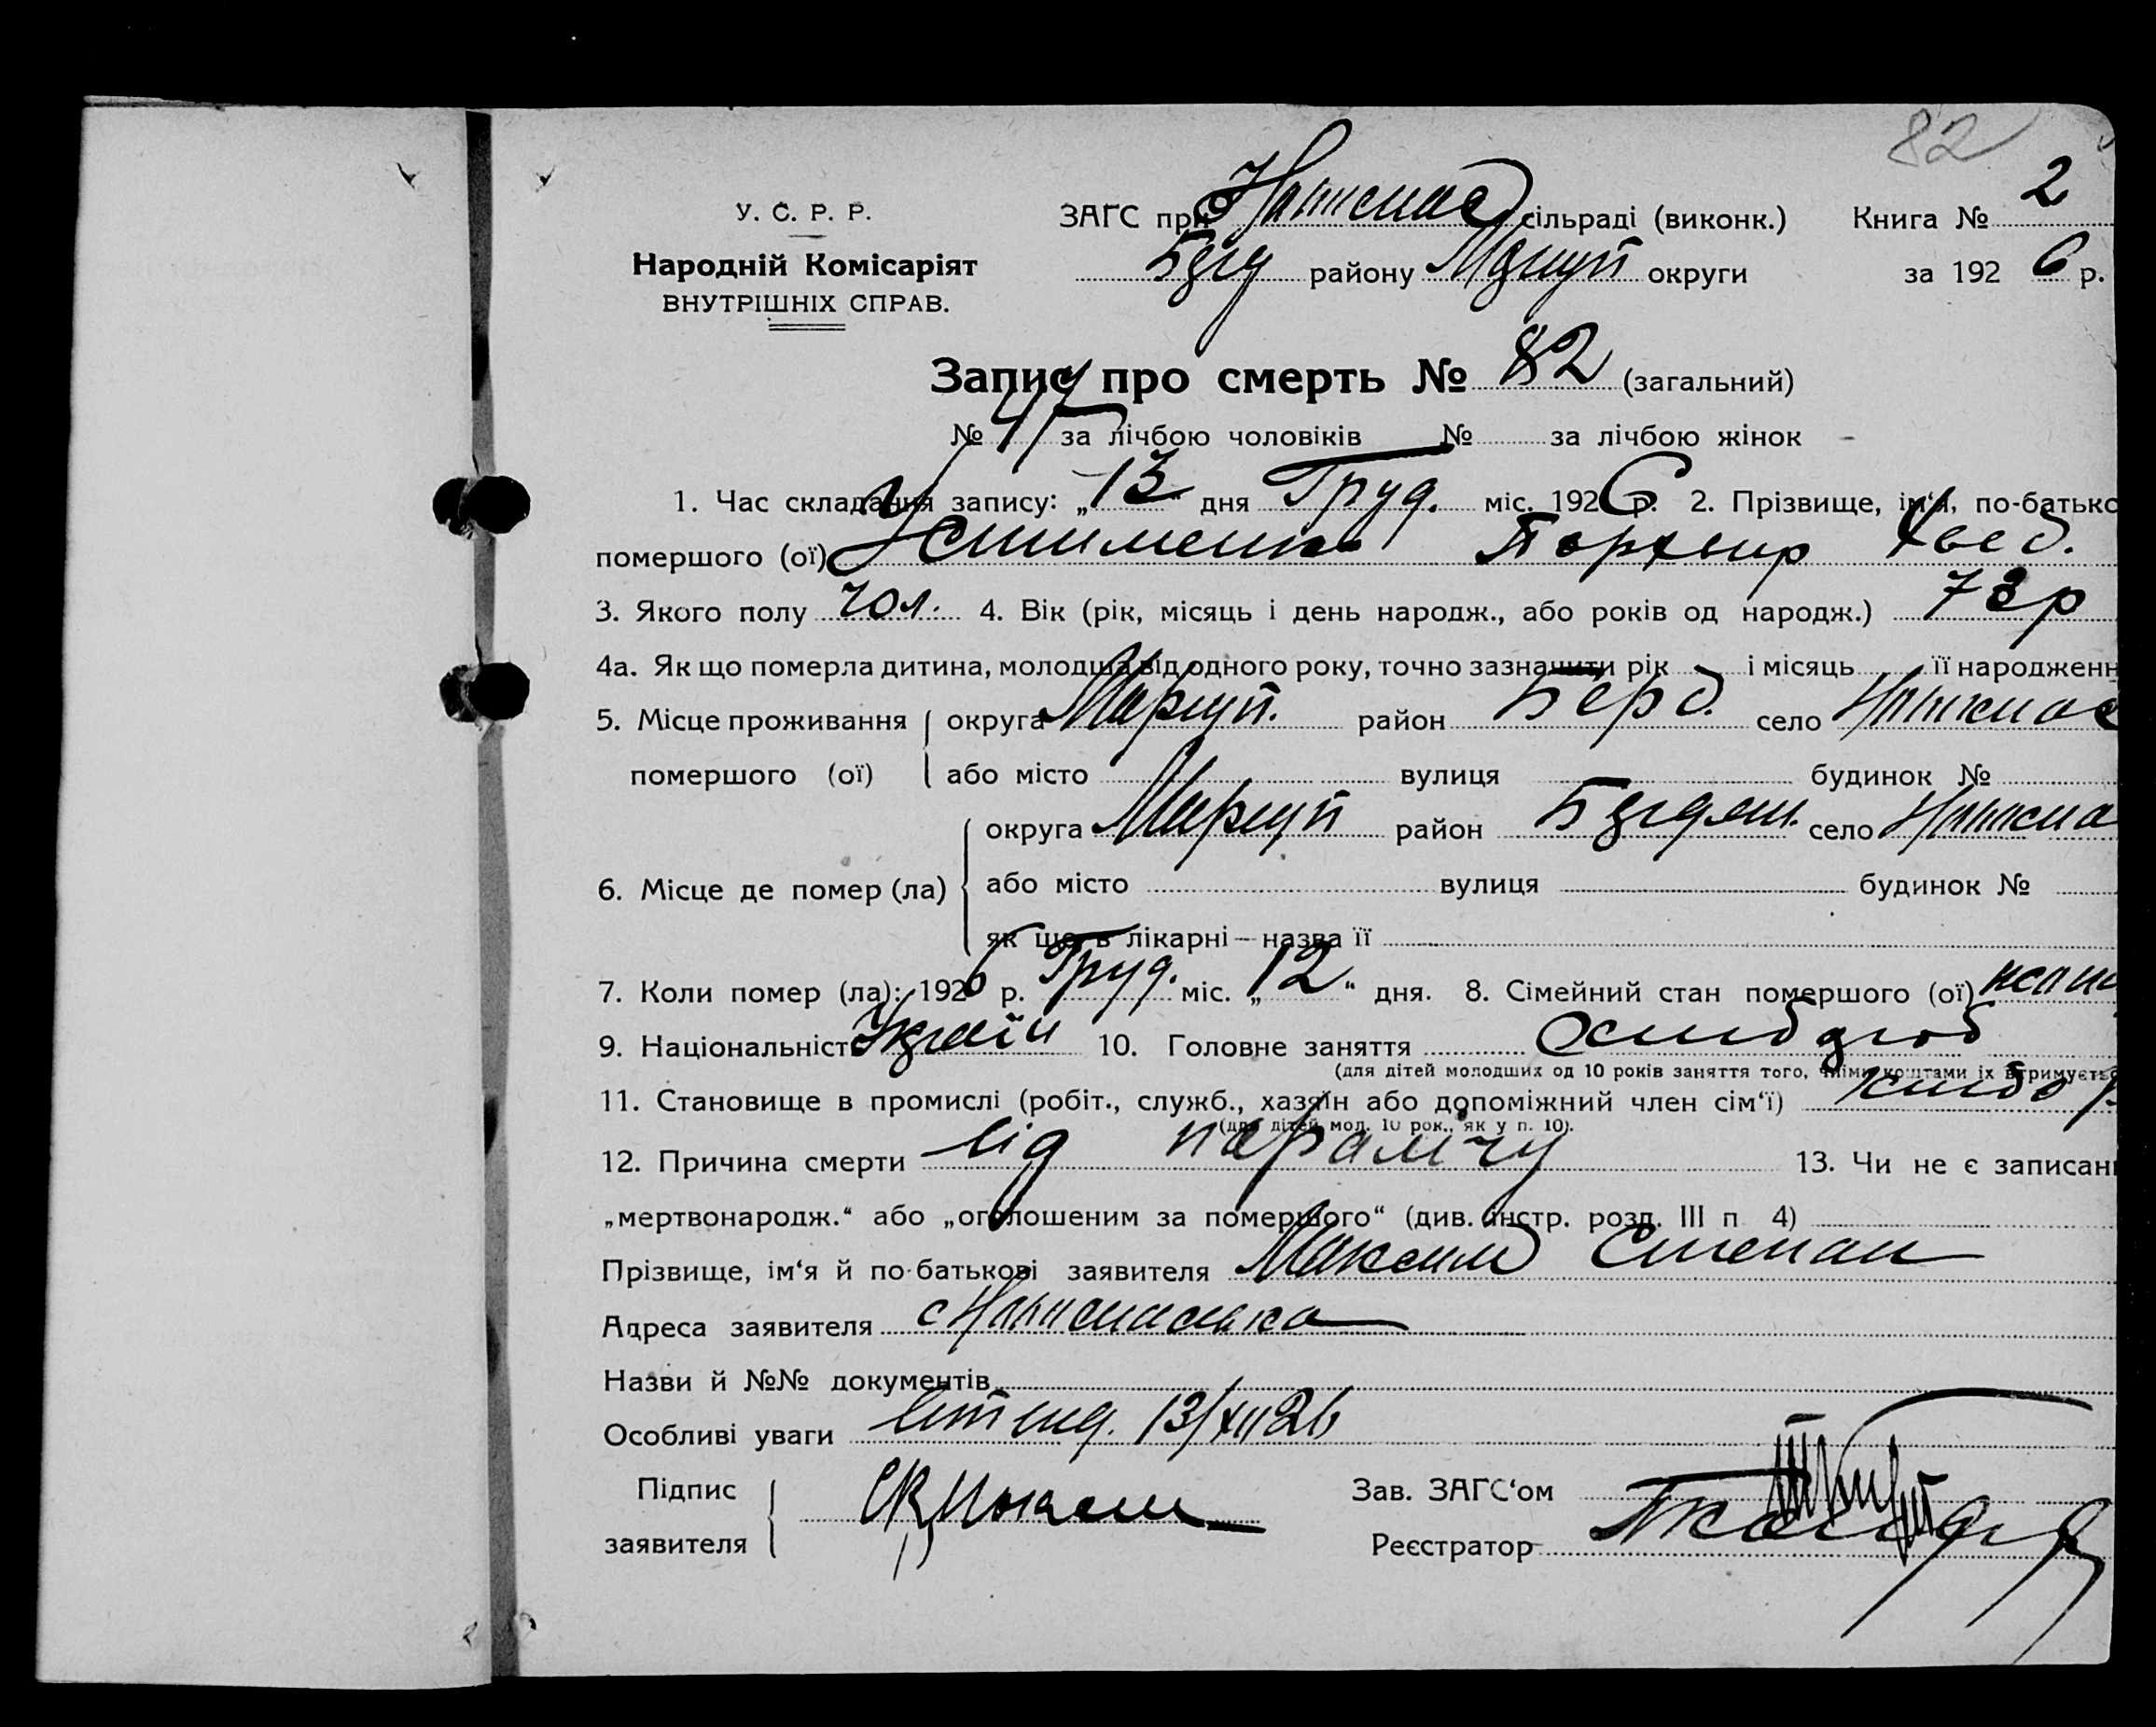 82
У. С. Р. Р.
Народній Комісаріят
ВНУТРІШНІХ СПРАВ.
ЗАГС при сільраді (виконк.) Книга № 2
району округи за 192 6 р.
Запис про смерть № 82 (загальний)
№ за лічбою чоловіків № за лічбою жінок -
1. Час складання запису: „ 13 " дня Груд. міс. 192 6 р. 2. Прізвище, ім'я, по-батько
помершого (ої) Устименко Порфир Фвед.
3. Якого полу чол. 4. Вік (рік, місяць і день народж., або років од народж.) 73 р
4а. Як що померла дитина, молодша від одного року, точно зазначити рік і місяць її народженн
5. Місце проживання округа Маріуп. район Берд. село
помершого (ої) або місто вулиця будинок №
округа Маріуп район село
6. Місце де помер (ла) або місто вулиця будинок №
як що в лікарні — назва її
7. Коли помер (ла): 192 6 р. Груд. міс. „ 12 " дня. 8. Сімейний стан помершого (ої)
9. Національність Україн 10. Головне заняття Хлібороб
(для дітей молодших од 10 років заняття того, чиїми коштами їх втримуєтьс
11. Становище в промислі (робіт., служб., хазяїн або допоміжний член сім'ї) хлібор.
(для дітей мол. 10 рок., як у п. 10).
12. Причина смерти від параличу 13. Чи не є записан
„мертвонародж." або „оголошеним за помершого" (див. інстр. розд. III п 4)
Прізвище, ім'я й по-батькові заявителя Максим Степан
Адреса заявителя с
Назви й №№ документів
Особливі уваги 13/XII 26
Підпис
заявителя
Зав. ЗАГС'ом
Реєстратор